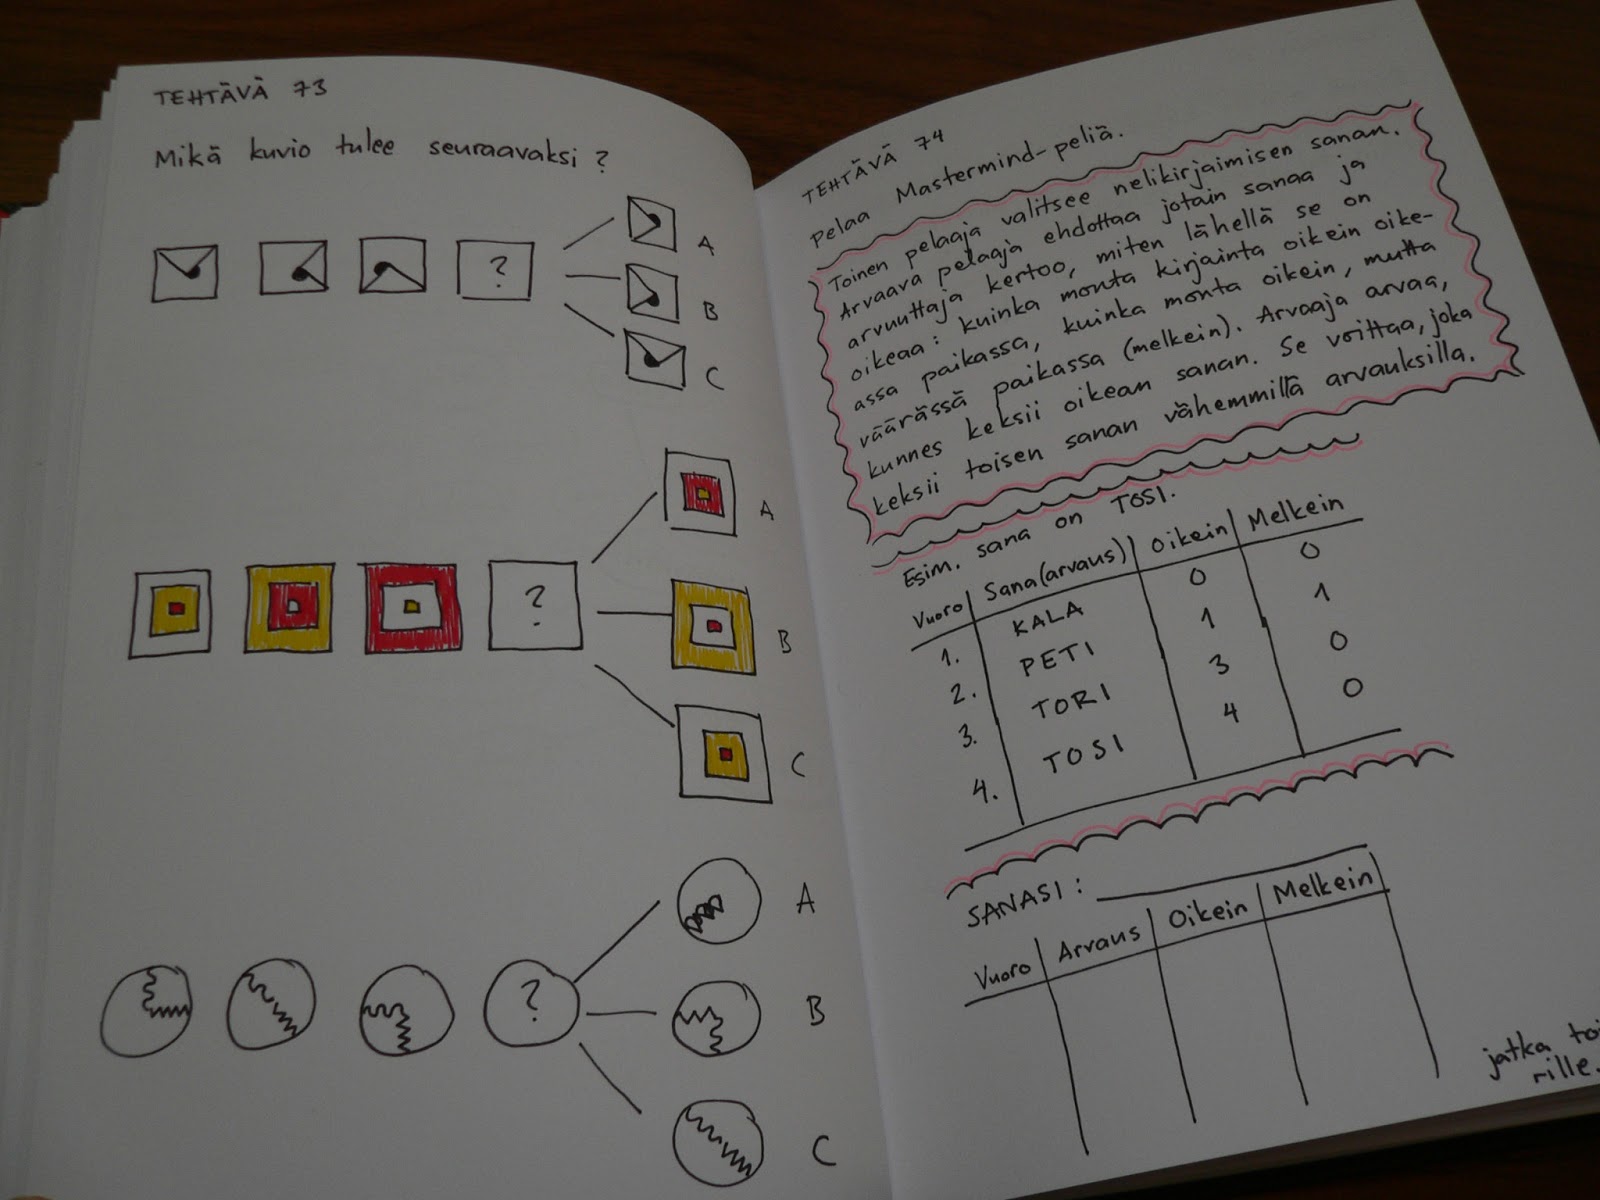 TEHTÄVÄ 73
Mikä kuvio tulee seuraavaksi?
?
A
B
C
?
A
B
C
?
A
B
C
TEHTÄVÄ 74
pelaa Mastermind-peliä.
Toinen pelaaja valitsee nelikirjaimisen sanan.
Arvaava pelaaja ehdottaa jotain sanaa ja
arvuuttaja kertoo, miten lähellä se on
oikeaa: kuinka monta kirjainta oikein oike-
assa paikassa, kuinka monta oikein, mutta
väärässä paikassa (melkein). Arvaaja arvaa,
kunnes keksii oikean sanan. Se voittaa, joka
keksii toisen sanan vähemmillä arvauksilla.
Esim. sana on TOSI.
Vuoro Sana(arvaus) Oikein Melkein
1. KALA 0 0
2. PETI 1 1
3. TORI 3 0
4. TOSI 4 0
SANASI:
Vuoro Arvaus Oikein Melkein
jatka
rille.